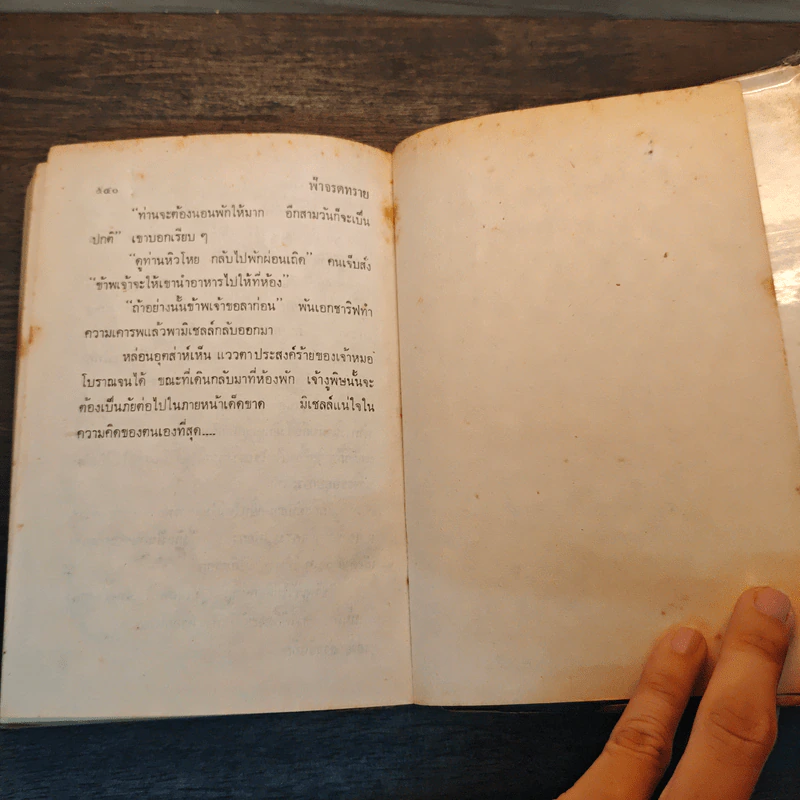 ๕๔๐ ฟ้าจรดทราย
“ท่านจะต้องนอนพักให้มาก อีกสามวันก็จะเป็น
ปกติ” เขาบอกเรียบ ๆ
“ดูท่านหิวโหย กลับไปพักผ่อนเถิด” คนเจ็บสั่ง
“ข้าพเจ้าจะให้เขานำอาหารไปให้ที่ห้อง”
“ถ้าอย่างนั้นข้าพเจ้าขอลาก่อน” พันเอกชารีฟทำ
ความเคารพแล้วพามิเชลล์กลับออกมา
หล่อนอุตส่าห์เห็น แววตาประสงค์ร้ายของเจ้าหมอ
โบราณจนได้ ขณะที่เดินกลับมาที่ห้องพัก เจ้างูพิษนั้นจะ
ต้องเป็นภัยต่อไปในภายหน้าเด็ดขาด มิเชลล์แน่ใจใน
ความคิดของตนเองที่สุด....